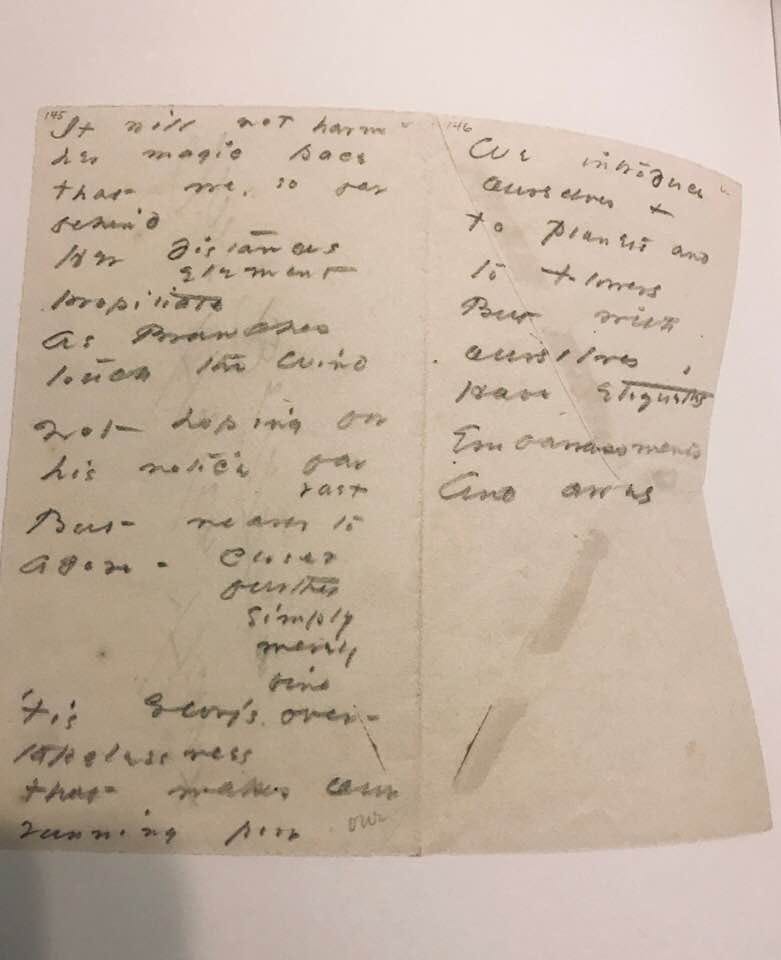 145
It will not harm
her magic pace
that we, so far
behind
Her Distances
element
propitiate
As Branches
touch the Wind
Not hoping for
his notice far
vast
But nearer to
adore - closer
further
simply
merely
'tis Glory's over-
takelessness
that makes our
running poor our
146
We introduce
ourselves +
to Planets and
to Flowers
But with
ourselves
Have Etiquettes
Embarrassments
And awes